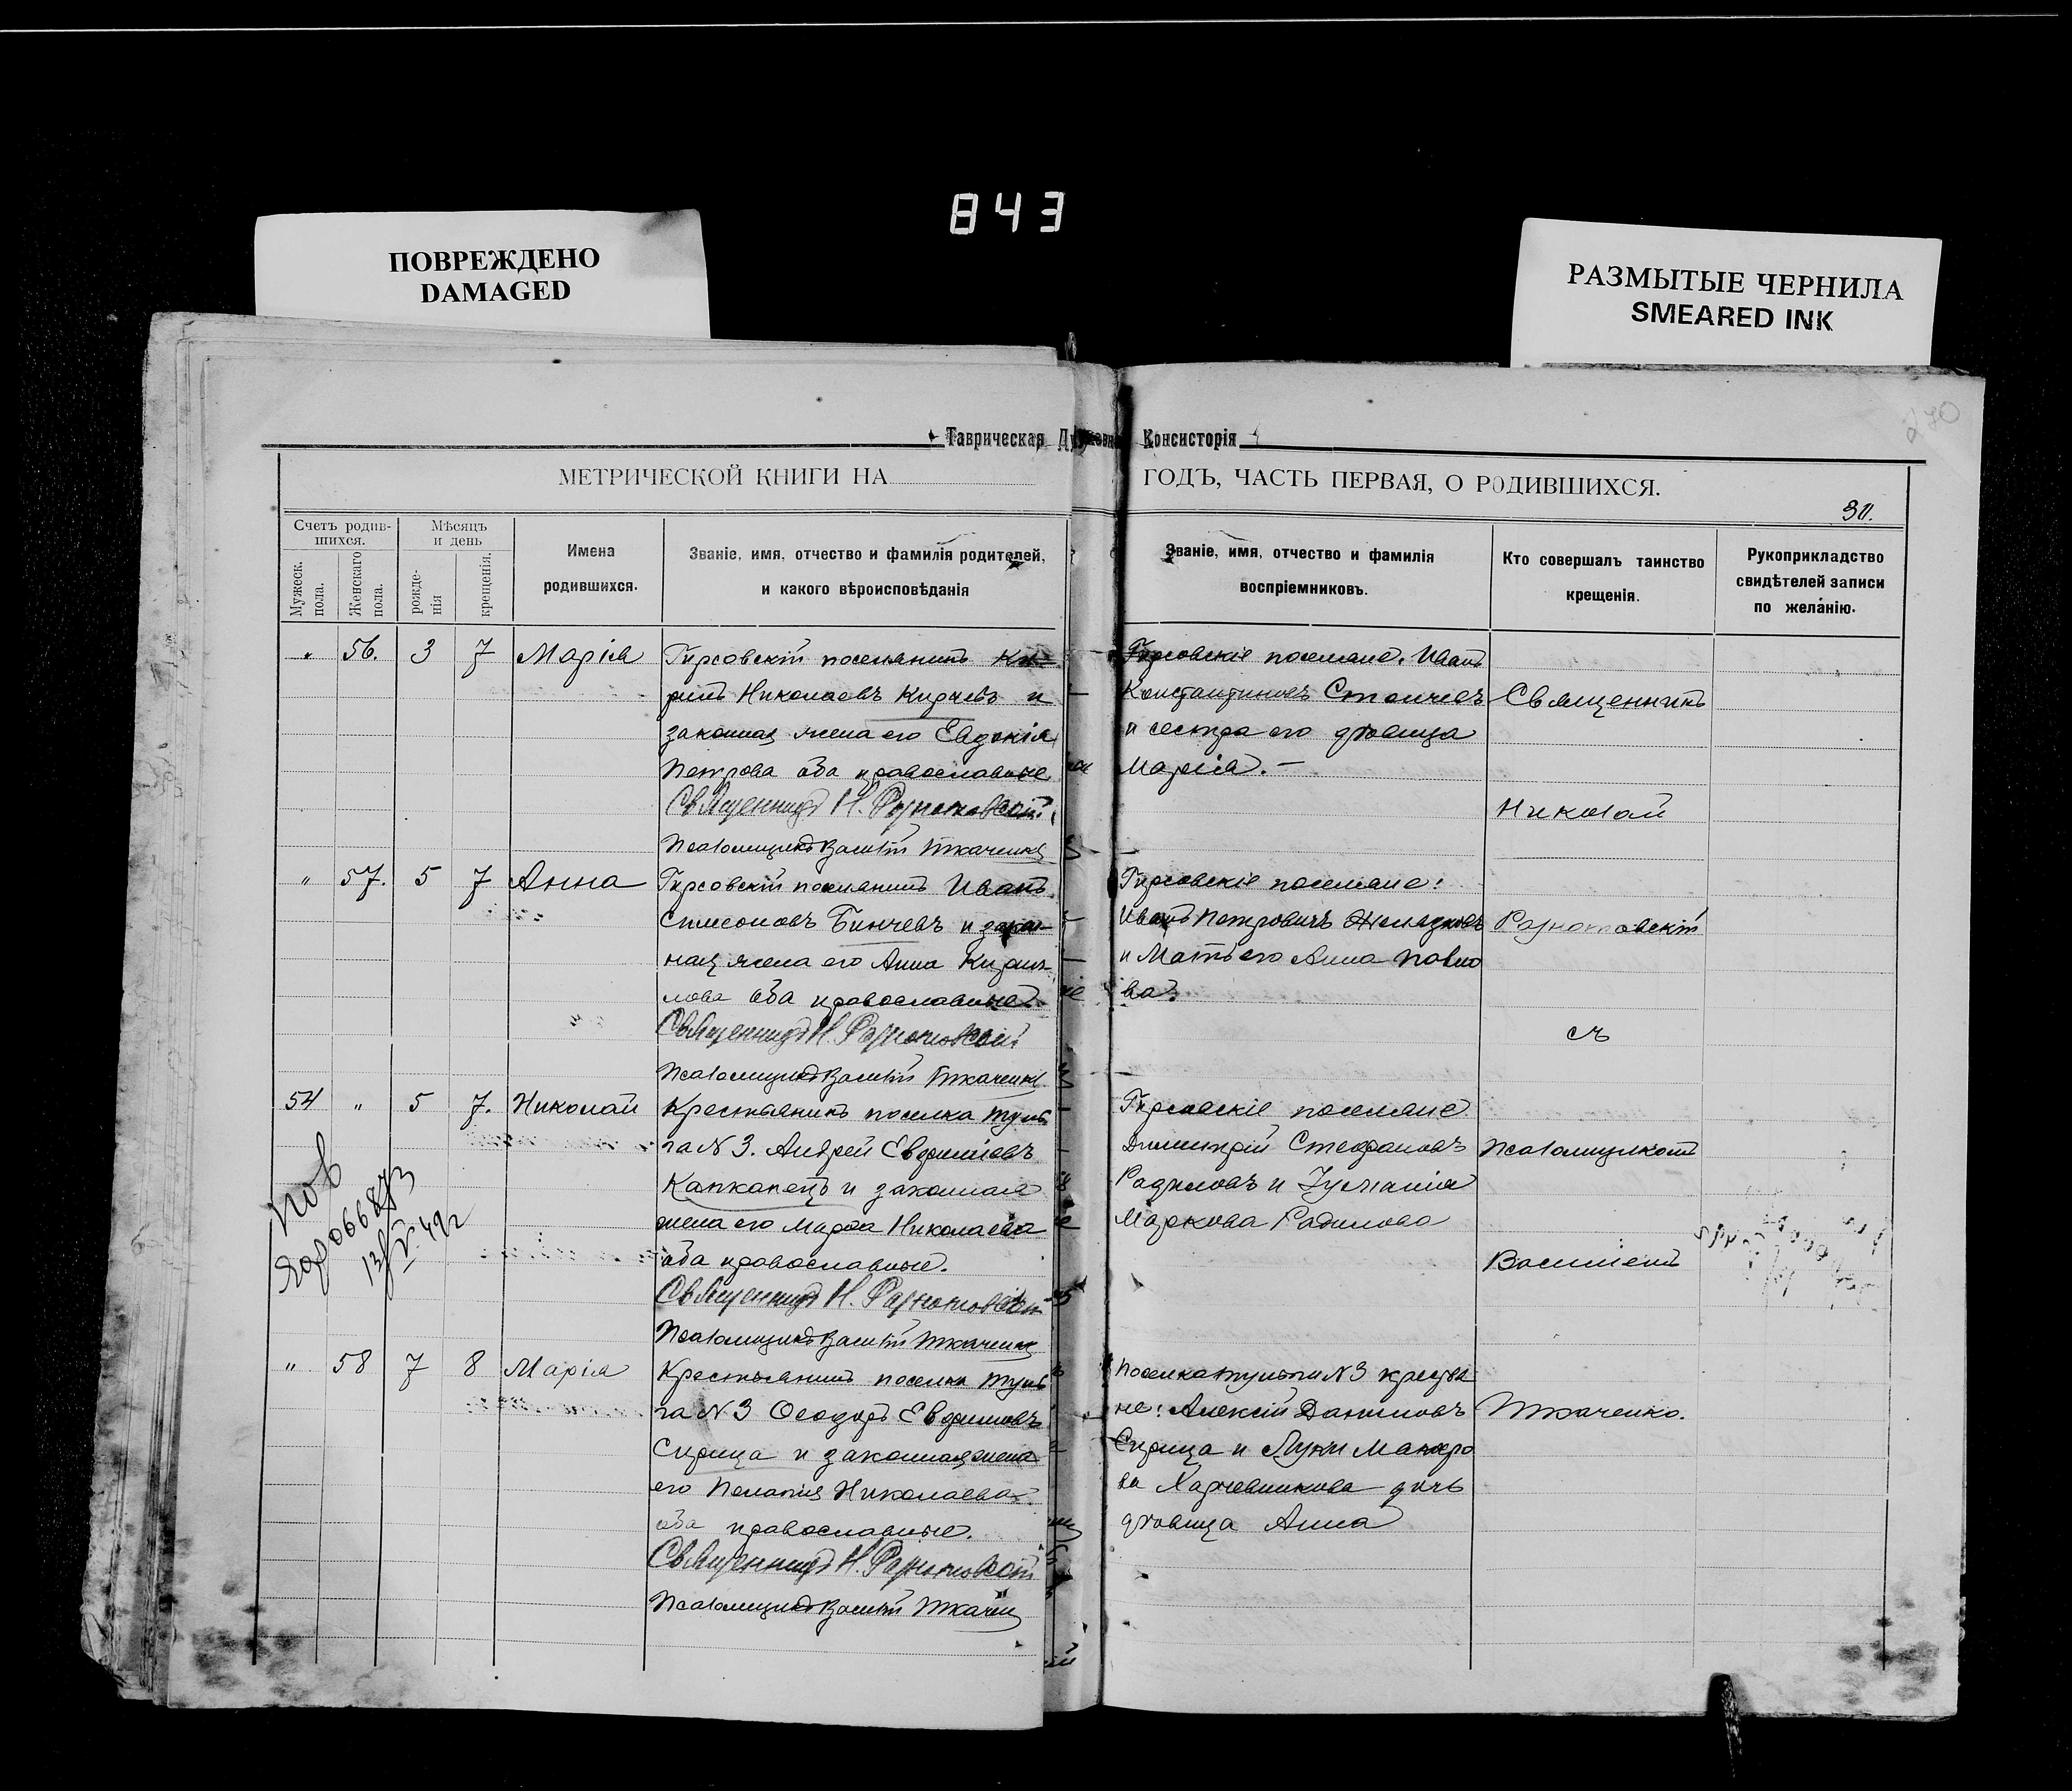 843
ПОВРЕЖДЕНО
DAMAGED
РАЗМЫТЫЕ ЧЕРНИЛА
SMEARED INK
270
Таврическая Духовная Консисторія
МЕТРИЧЕСКОЙ КНИГИ НА ГОДЪ, ЧАСТЬ ПЕРВАЯ, О РОДИВШИХСЯ.
Счетъ родив-
шихся.
Мужеск.
пола.
Женскаго
пола.
Мѣсяцъ
и день
рожде-
нія
крещенія.
Имена
родившихся.
Званіе, имя, отчество и фамилія родителей,
и какого вѣроисповѣданія
Званіе, имя, отчество и фамилія
воспріемниковъ.
Кто совершалъ таинство
крещенія.
Рукоприкладство
свидѣтелей записи
по желанію.
" 56. 3 7 Марія
Гирсовскій поселянинъ Ки-
рилъ Николаевъ и
законная жена его Евдокія
Петрова оба православные
Священникъ Н.
Псаломщикъ Василій Ткаченко
Гирсовскіе поселяне: Иванъ
Константиновъ Стоичевъ
и сестра его дѣвица
Марія. –
Священникъ
Николай
" 57. 5 7 Анна
Гирсовскій поселянинъ Иванъ
Симеоновъ Бинчевъ и закон-
ная жена его Анна Кирил-
лова оба православные
Священникъ Н.
Псаломщикъ Василій Ткаченко
Гирсовскіе поселяне:
Иванъ Петровичъ Желязковъ
и Мать его Анна Павло
ва.
съ
54 " 5 7. Николай
Крестьянинъ поселка Туль
па N 3. Андрей Евфиміевъ
Капканецъ и законная
жена его Марфа Николаева
оба православные.
Священникъ Н.
Псаломщикъ Василій Ткаченко
Гирсовскіе поселяне
Димитрій Стефановъ
Радиловъ и Іулианія
Маркова Радилова
Псаломщикомъ
Василіемъ
пов
" 58 7 8 Марія
Крестьянинъ поселка Туль
па N 3 Ѳеодоръ Евфимовъ
Сирица и законная жена
его Пелагія Николаева
оба православные.
Священникъ Н.
Псаломщикъ Василій Ткаченко
Поселка Тульпи N 3 крестья
не: Алексій Даниловъ
Сирица и Луки
ва Харчевникова дочь
дѣвица Анна
Ткаченко.